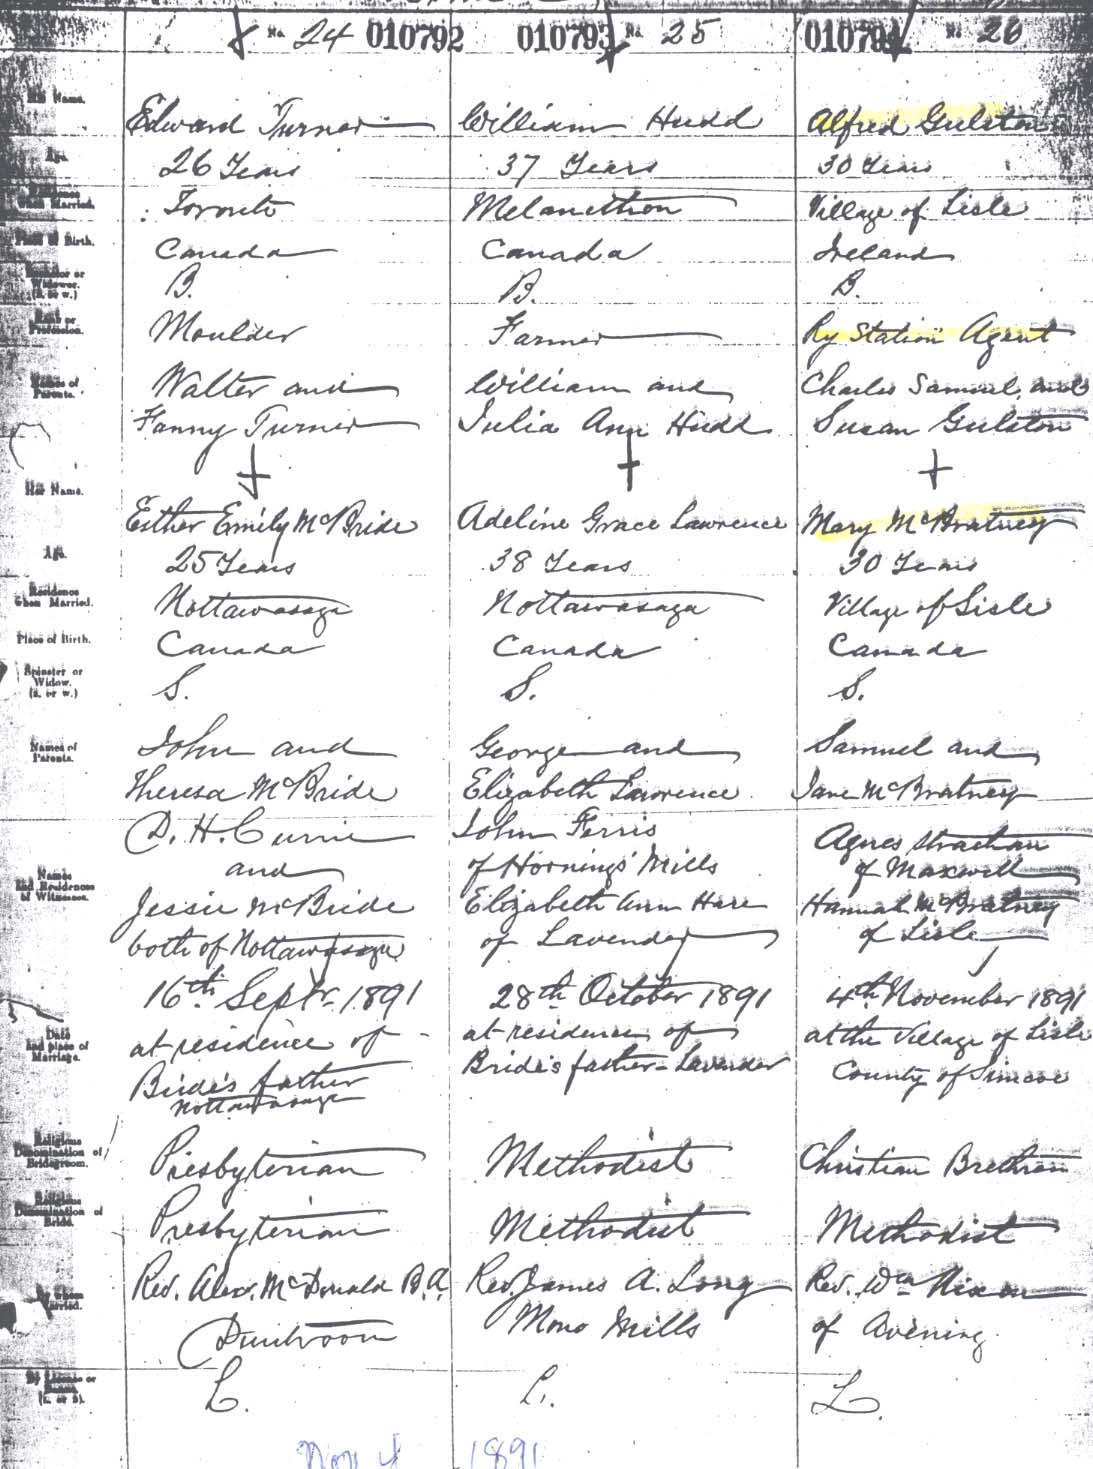 No. 24 010792
010793 No. 25
010794 No. 26
His Name.
Edward Turner
William Hudd
Alfred Gulston
Age.
26 Years
37 Years
30 Years
Residence when Married.
Toronto
Melancthon
Village of Lisle
Place of Birth.
Canada
Canada
Ireland
Bachelor or Widower. (B. or W.)
B.
B.
B.
Rank or Profession.
Moulder
Farmer
Ry Station Agent
Names of Parents.
Walter and
William and
Charles Samuel, and
Fanny Turner
Julia Ann Hudd
Susan Gulston
Her Name.
Esther Emily McBride
Adeline Grace Lawrence
Mary McBratney
Age.
25 Years
38 Years
30 Years
Residence when Married.
Nottawasaga
Nottawasaga
Village of Lisle
Place of Birth.
Canada
Canada
Canada
Spinster or Widow. (S. or W.)
S.
S.
S.
Names of Parents.
John and
George and
Samuel and
Theresa McBride
Elizabeth Lawrence
Jane McBratney
Names and Residences of Witnesses.
D. H. Currie
and
Jessie McBride
both of Nottawasaga
John Ferris
of Hornings' Mills
Elizabeth Ann Hare
of Lavender
Agnes Strachan
of Maxwell
Hannah McBratney
of Lisle
Date and place of Marriage.
16th Septr. 1891
at residence of
Bride's father
Nottawasaga
28th October 1891
at residence of
Bride's father - Lavender
4th November 1891
at the Village of Lisle
County of Simcoe
Religious Denomination of Bridegroom.
Presbyterian
Methodist
Christian Brethren
Religious Denomination of Bride.
Presbyterian
Methodist
Methodist
By whom Married.
Rev. Alex. McDonald B.A.
Duntroon
Rev. James A. Long
Mono Mills
Rev. Wm Nixon
of Avening.
By License or Banns. (L. or B.)
L.
L.
L.
Nov 4 1891